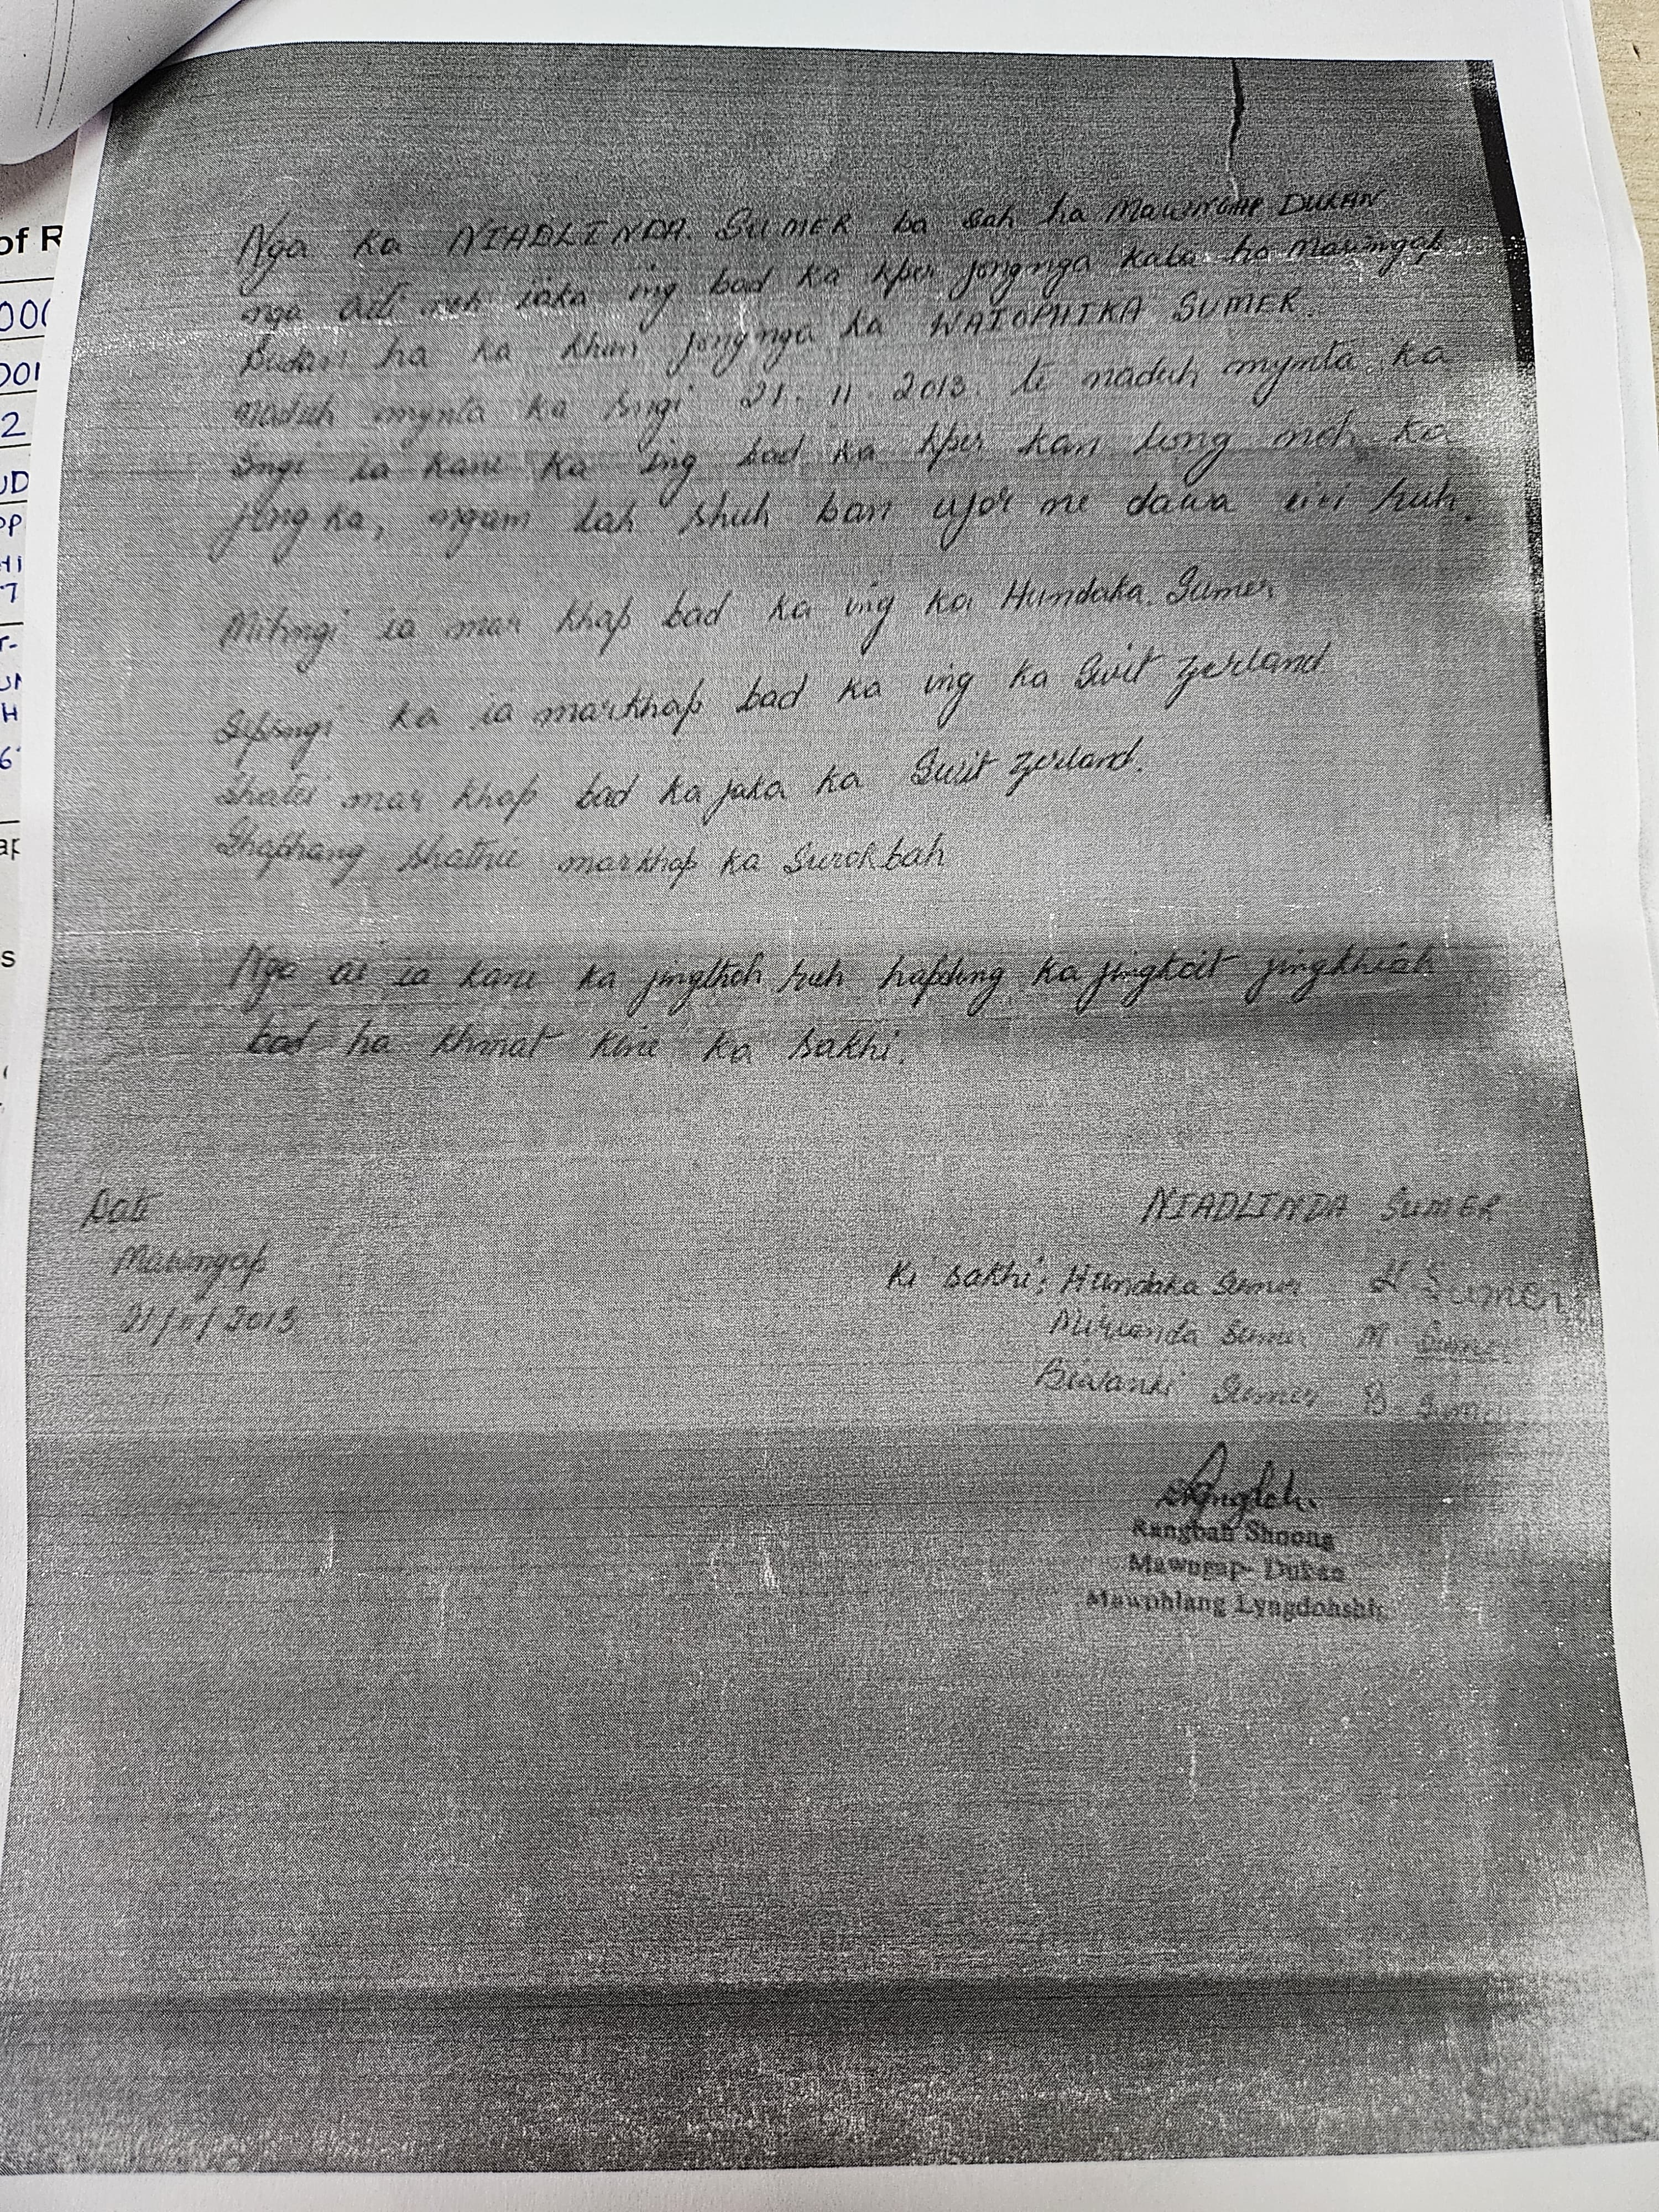 of R
Nga ka NIADLINDA. SUMER ba sah ha MAWNGAP DUKAN
nga aiti noh iaka ing bad ka kper jongnga kaba ha Mawngap
Dukan ha ka khun jongnga ka WATOPHIKA SUMER.
naduh mynta ka sngi 21. 11. 2013. te naduh mynta ka
sngi ia kane ka ing bad ka kper kan long noh ka
jong ka, ngam lah shuh ban ujor ne dawa eiei ruh.
Mihngi ia mar khap bad ka ing ka Hundaka. Sumer
Sepsngi ka ia markhap bad ka ing ka Swit zerland
Shatei mar khap bad ka jaka ka Swit zerland.
Shaphang shathie markhap ka Surokbah
Nga ai ia kane ka jingthoh ruh hapdeng ka jingkoit jingkhiah
bad ha khmat kine ka sakhi.
Mawngap
21/11/2013
NIADLINDA SUMER
Ki sakhi: Hundaka Sumer H Sumer
Miranda Sumer M. Sumer
Sumer B. Sumer
Rangbah Shnong
Mawngap- Dukan
Mawphlang Lyngdohship